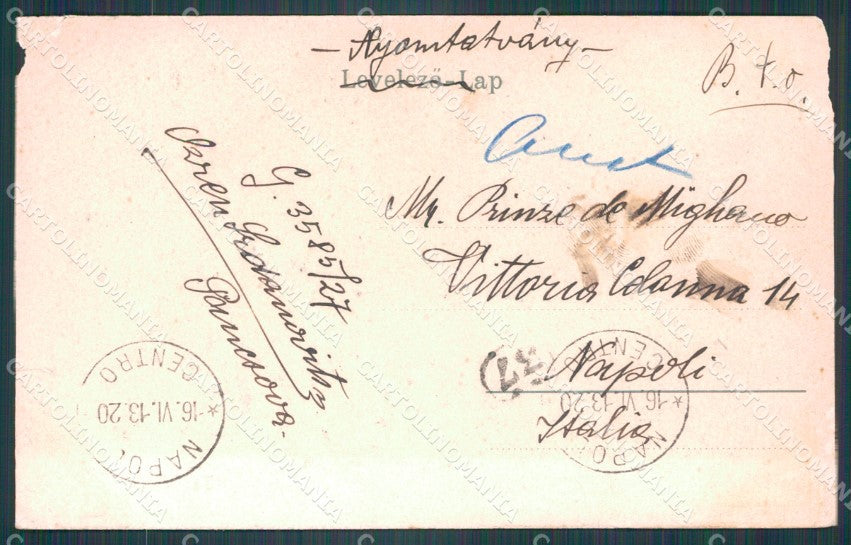 – Nyomtatvány –
Levelező-Lap
B. t. o.
Mr. Prinze de Mighano
Vittoria Colonna 14
Napoli
Italia
G. 3585/27
Szreu Srdanovits
Pancsova.
NAPOLI CENTRO
* 16.VI.13.20 *
NAPOLI CENTRO
* 16.VI.13.20
(37)
CARTOLINOMANIA